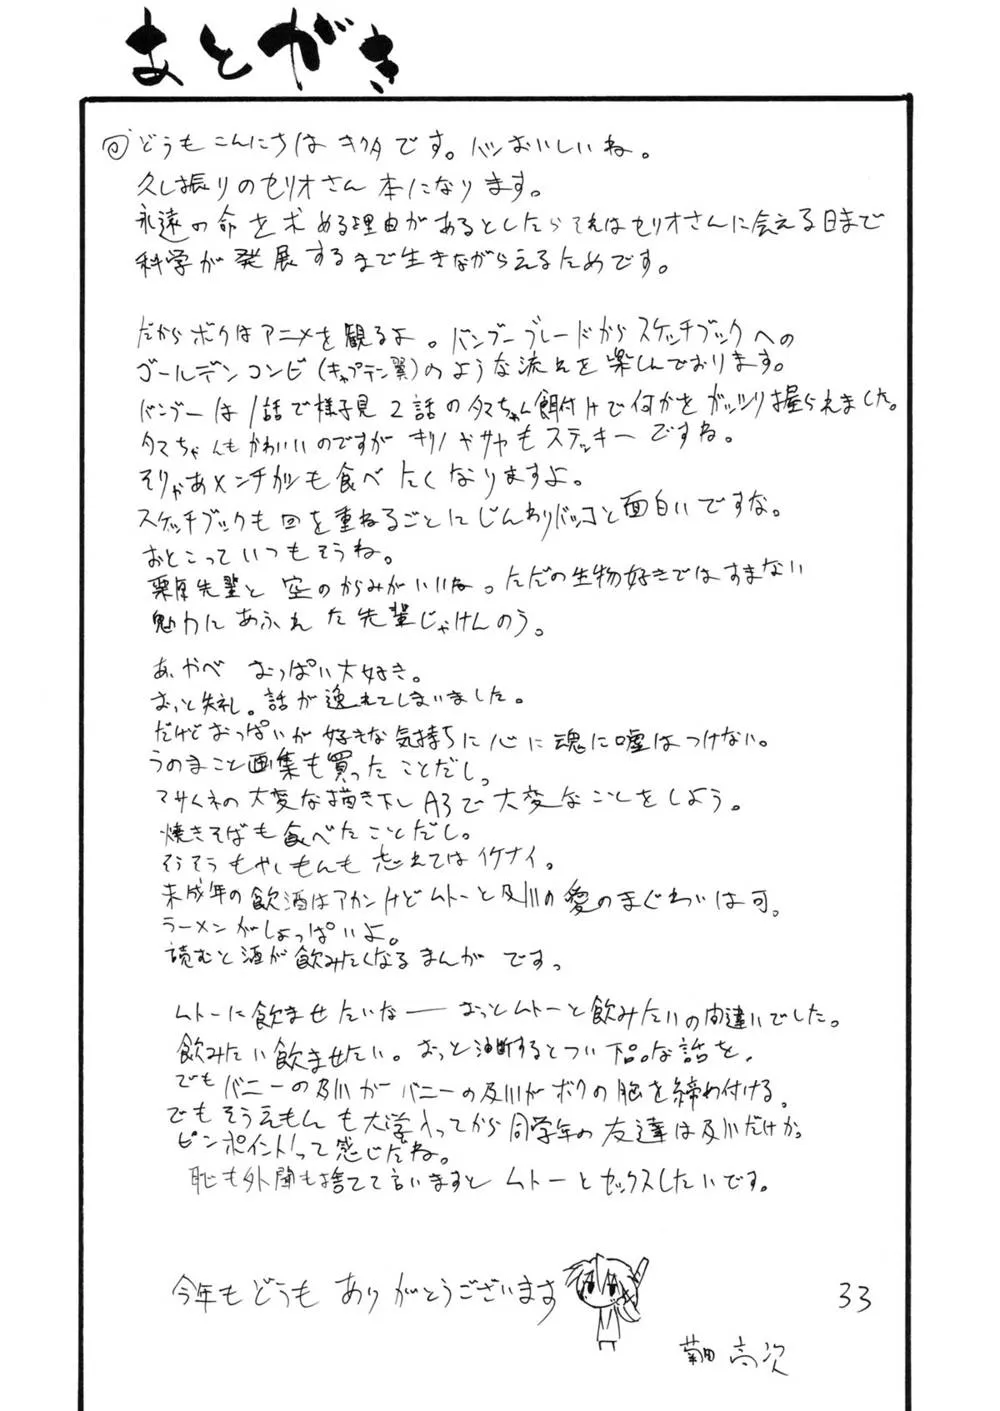 あとがき
どうもこんにちは キクタです。パンおいしいね。
久し振りのセリオさん本になります。
永遠の命を求める理由があるとしたらそれはセリオさんに会える日まで
科学が発展するまで生きながらえるためです。
だからボクはアニメを観るよ。バンブーブレードからスケッチブックへの
ゴールデンコンビ(キャプテン翼)のような流れを楽しんでおります。
バンブーは1話で様子見2話のタマちゃん餌付けで何かをガッツリ握られました。
タマちゃんもかわいいのですがキリノやサヤもステッキーですね。
そりゃあメンチカツも食べたくなりますよ。
スケッチブックも回を重ねるごとにじんわりバッコと面白いですな。
おとこっていつもそうね。
栗原先輩と空のからみがいいね。ただの生物好きではすまない
魅力にあふれた先輩じゃけんのう。
あ、やべ おっぱい大好き。
おっと失礼。話が逸れてしまいました。
だけどおっぱいが好きな気持ちに心に魂に嘘はつけない。
うのまこと画集も買ったことだし。
マサムネの大変な描き下しA3で大変なことをしよう。
焼きそばも食べたことだし。
そうそうもやしもんも忘れてはイケナイ。
未成年の飲酒はアカンけどムトーと及川の愛のまぐわいは可。
ラーメンがしょっぱいよ。
読むと酒が飲みたくなるまんがです。
ムトーに飲ませたいなーおっとムトーと飲みたいの間違いでした。
飲みたい飲ませたい。おっと油断するとつい下品な話を。
でもバニーの及川がバニーの及川がボクの胸を締め付ける。
でもそうえもんも大学入ってから同学年の友達は及川だけか。
ピンポイントって感じだね。
恥も外聞も捨てて言いますとムトーとセックスしたいです。
今年もどうもありがとうございます
33
菊田 高次